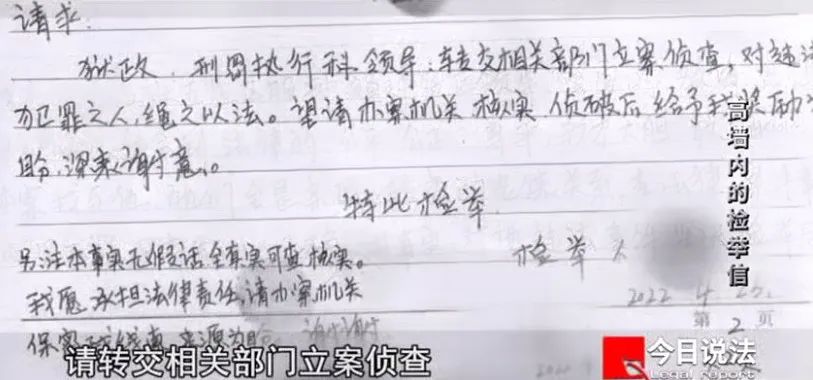 请求:
狱政、刑罚执行科领导:转交相关部门立案侦查,对违法
犯罪之人,绳之以法。望请办案机关核实、侦破后给予我奖励为
盼,深表谢意。
特此检举
另:注本事实无假话,全真实可查核实。
我愿承担法律责任,请办案机关
检举人
2022.4.
保密 谢谢
第2页
高墙内的检举信
请转交相关部门立案侦查
今日说法
Legal report